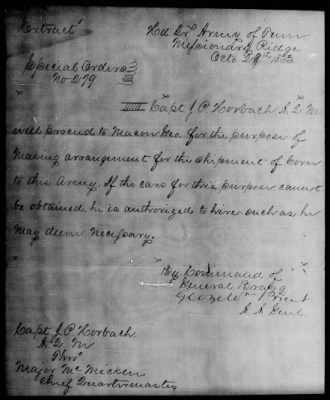 Extract
Hd Qrs Army of Tenn
Missionary Ridge
Octo 29th 1863
Special Orders
No 279
IIII Capt J. P. Horbach A. Q. M
will proceed to Macon Geo. for the purpose of
making arrangement for the shipment of Corn
to this Army. If the cars for this purpose cannot
be obtained, he is authorized to hire such as he
may deem necessary.
By Command of
General Bragg
Geo Wm Brent
A. A. Genl
Capt J. P. Horbach
A. Q. M
Thro'
Major McMicken
Chief Quartermaster